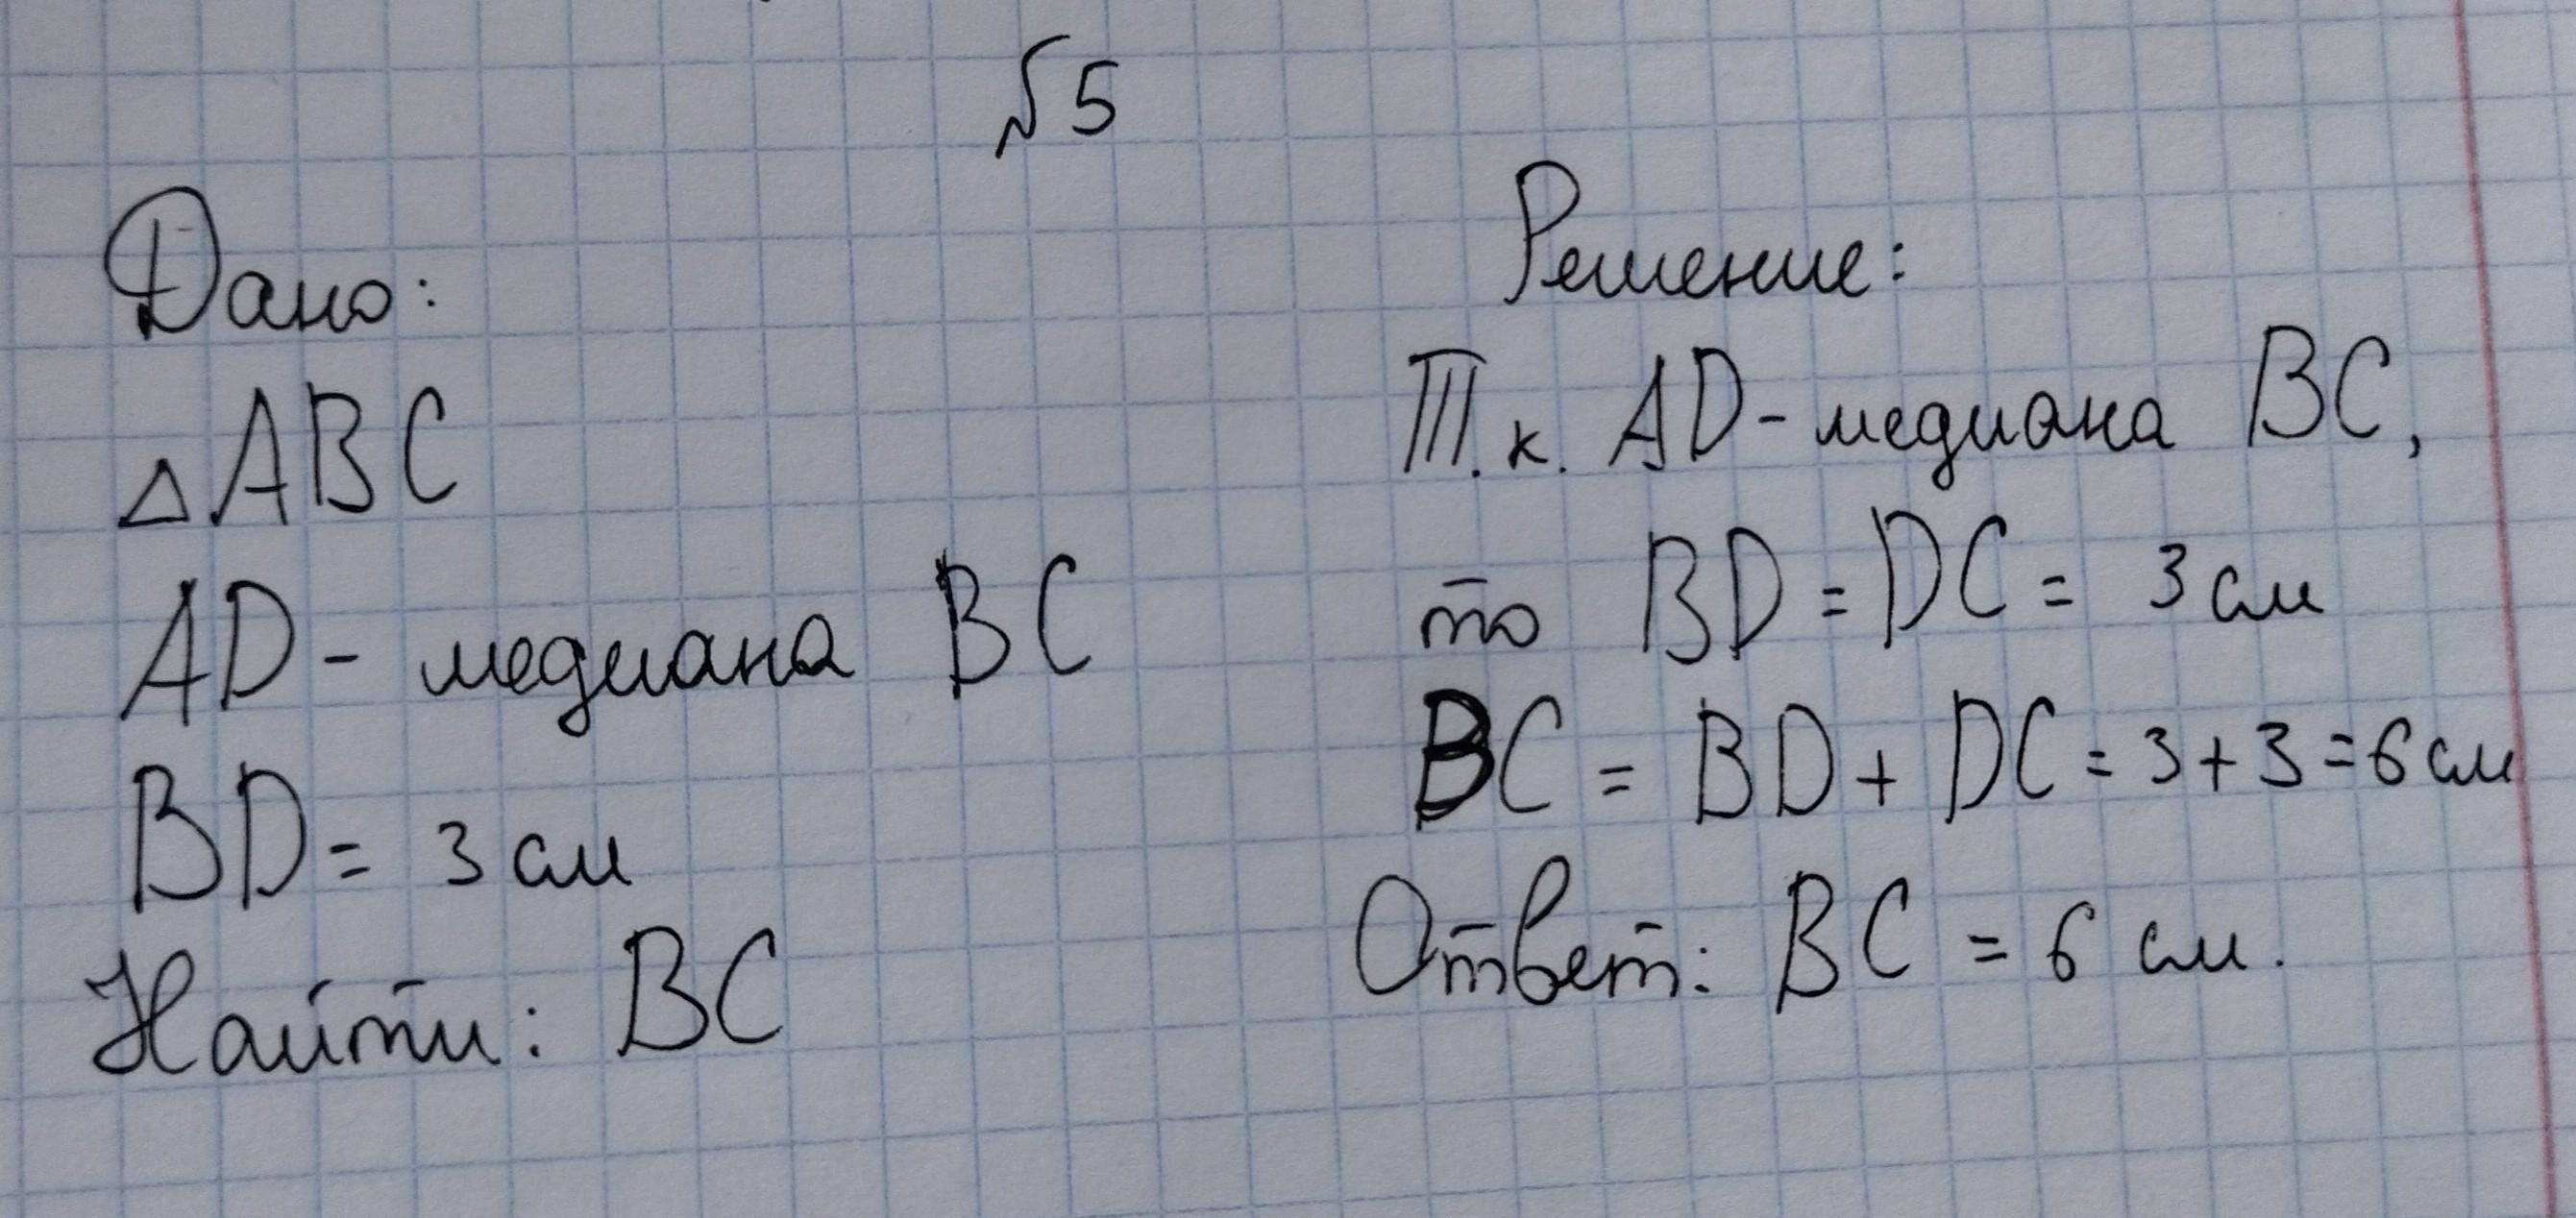 №5
Дано:
△ABC
AD - медиана BC
BD = 3 см
Найти: BC
Решение:
Т.к. AD - медиана BC,
то BD = DC = 3 см
BC = BD + DC = 3 + 3 = 6 см
Ответ: BC = 6 см.